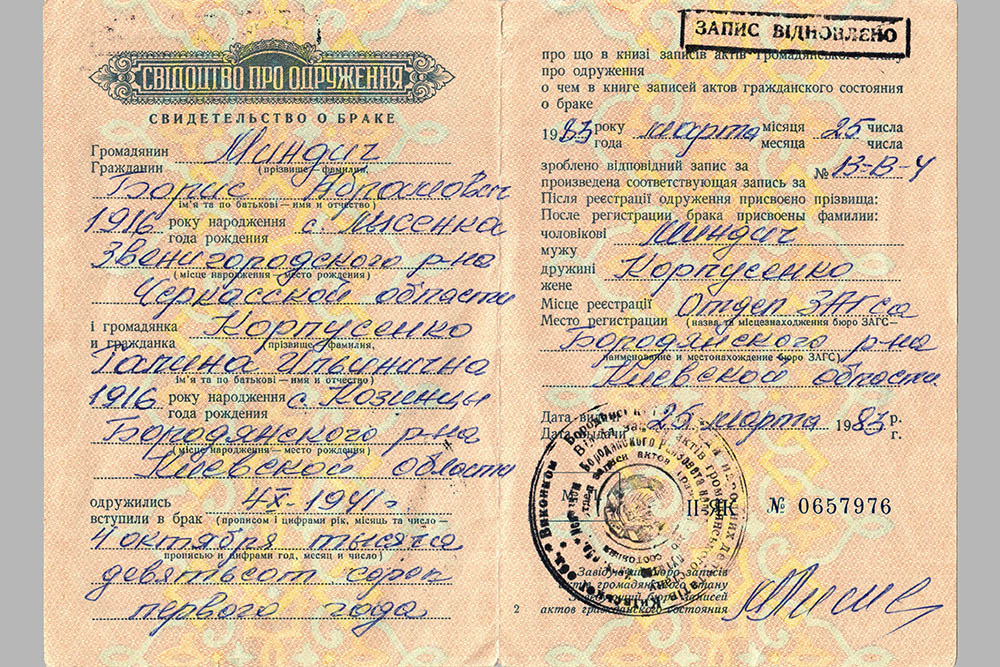 СВІДОЦТВО ПРО ОДРУЖЕННЯ
СВИДЕТЕЛЬСТВО О БРАКЕ
Громадянин
Гражданин Миндич
(прізвище—фамилия,
Борис Абрамович
ім'я та по батькові—имя и отчество)
1916 року народження с. Лысенка
года рождения
Звенигородского р-на
(місце народження—место рождения)
Черкасской области
і громадянка Корпусенко
и гражданка прізвище—фамилия,
Галина Ильинична
ім'я та по батькові—имя и отчество)
1916 року народження с. Козинцы
года рождения
Бородянского р-на
(місце народження—место рождения)
Киевской области
одружились 4X-1941г
вступили в брак (прописом і цифрами рік, місяць та число—
4 октября тысяча
прописью и цифрами год, месяц и число)
девятьсот сорок
первого года
ЗАПИС ВІДНОВЛЕНО
про що в книзі записів актів громадянського стану
про одруження
о чем в книге записей актов гражданского состояния
о браке
1983 року марта місяця 25 числа
года месяца числа
зроблено відповідний запис за
произведена соответствующая запись за № 13-В-4
Після реєстрації одруження присвоєно прізвища:
После регистрации брака присвоены фамилии:
чоловікові Миндич
мужу
дружині Корпусенко
жене
Місце реєстрації Отдел ЗАГСа
Место регистрации (назва та місцезнаходження бюро ЗАГС—
Бородянского р-на
наименование и местонахождение бюро ЗАГС)
Киевской области
Дата видачі 25 марта 1983 р.
Дата выдачи г.
II-ЯК № 0657976
Завідуючий бюро записів
актів громадянського стану
Заведующий бюро записей
актов гражданского состояния
2